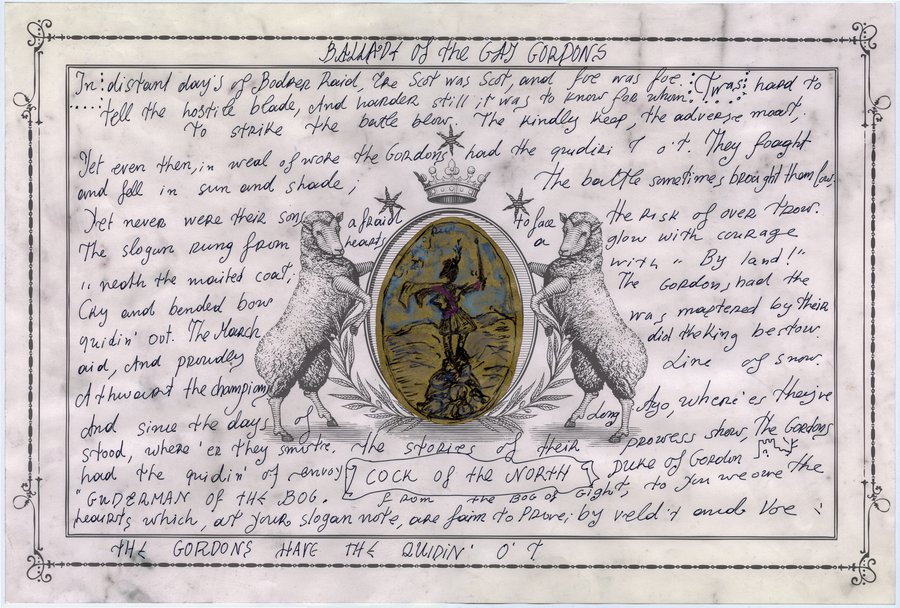 BALLADE of the GAY GORDONS
In distant days of Bodrer Raid, the Scot was Scot, and foe was foe. 'Twas hard to
tell the hostile blade, And harder still it was to know for whom
To strike the battle blow. The kindly keep, the adverse moat,
Yet even then, in weal of wore the Gordons had the guidin' o't. They fought
and fell in sun and shade; The battle sometimes brought them low,
Yet never were their sons afraid to face the risk of over throw.
The slogan rung from hearts a glow with courage
'neath the mailed coat; with "By land!"
Cry and bended bow The Gordons had the
guidin' out. The March was mastered by their
aid, And proudly did the King bestow
Athwart the champions Line of snow.
And since the days of long Ago, where'es they've
stood, where'er they smote. The stories of their prowess show, The Gordons
had the guidin' of envoy COCK of the NORTH DUKE of GORDON
"GUDERMAN OF THE BOG. FROM the BOG of Gight, to you we owe the
hearts which, at your slogan note, are fain to Prove; by veld't and Voe :
THE GORDONS HAVE THE GUIDIN' O'T